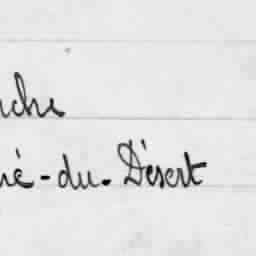 che
né-du-Désert